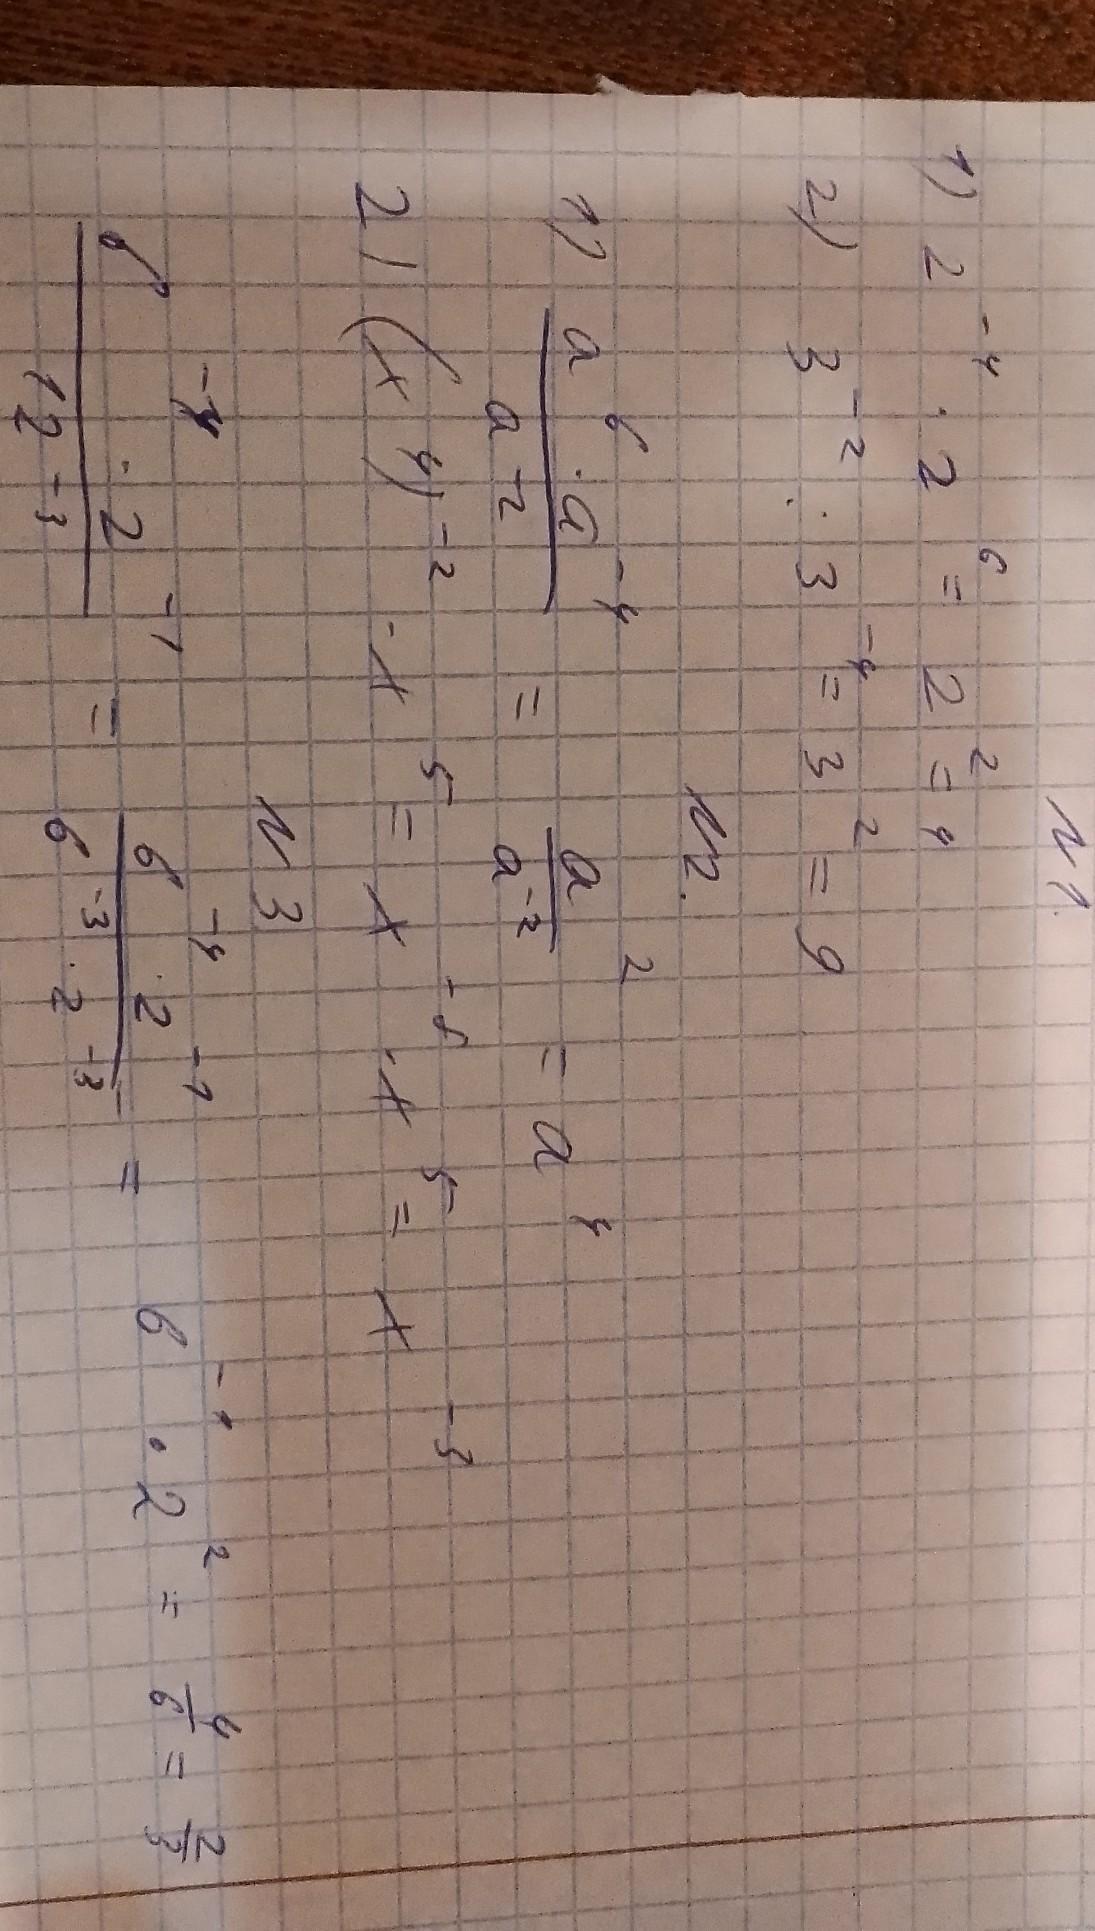 N 1.
1) 2⁻⁴ · 2⁶ = 2² = 4
2) 3⁻² : 3⁻⁴ = 3² = 9
N 2.
1) a⁶ · a⁻⁴ / a⁻² = a² / a⁻² = a⁴
2) (x⁴)⁻² · x⁵ = x⁻⁸ · x⁵ = x⁻³
N 3
6⁻⁴ · 2⁻¹ / 12⁻³ = 6⁻⁴ · 2⁻¹ / 6⁻³ · 2⁻³ = 6⁻¹ · 2² = 4/6 = 2/3